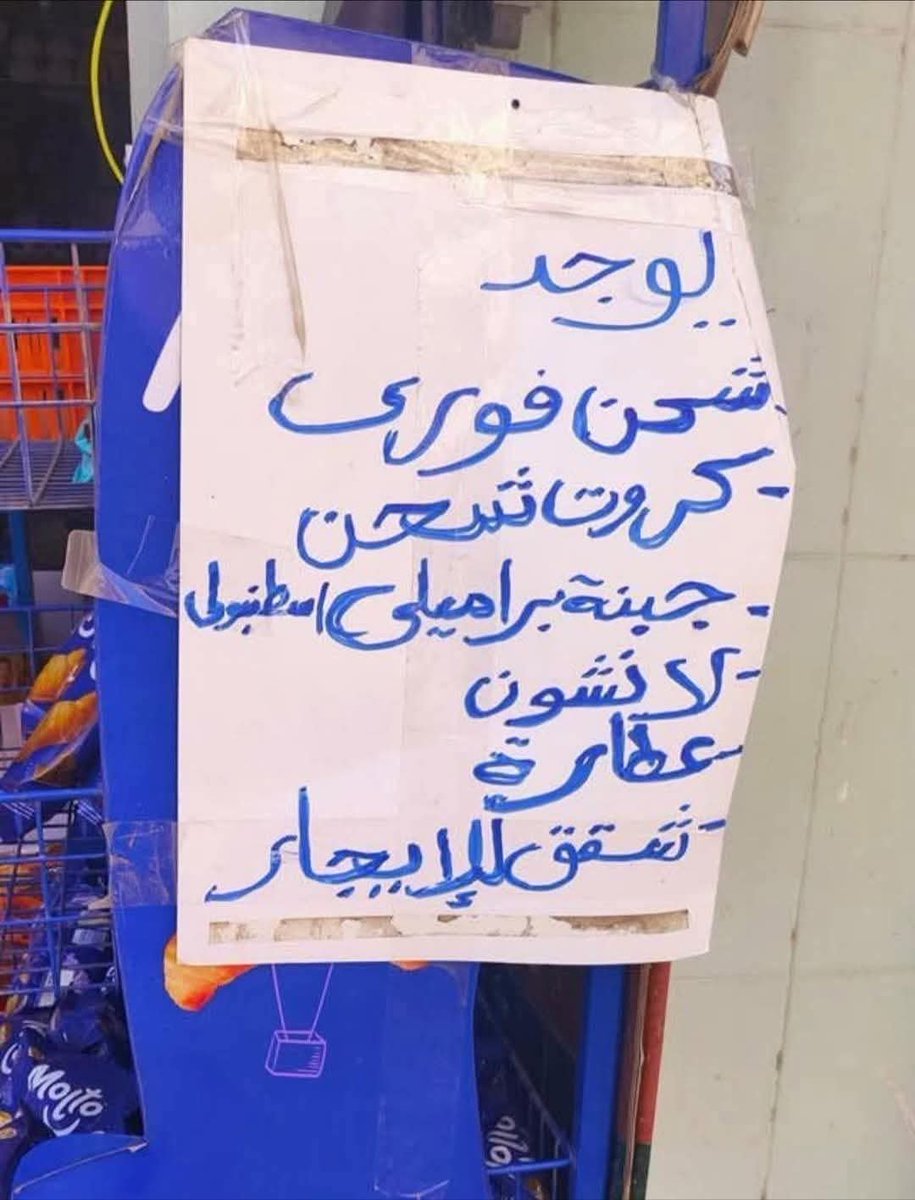 يوجد
- شحن فورى
- كروت شحن
- جبنة براميلى اسطنبولى
- لانشون
- عطارة
- شقق للإيجار
Molto